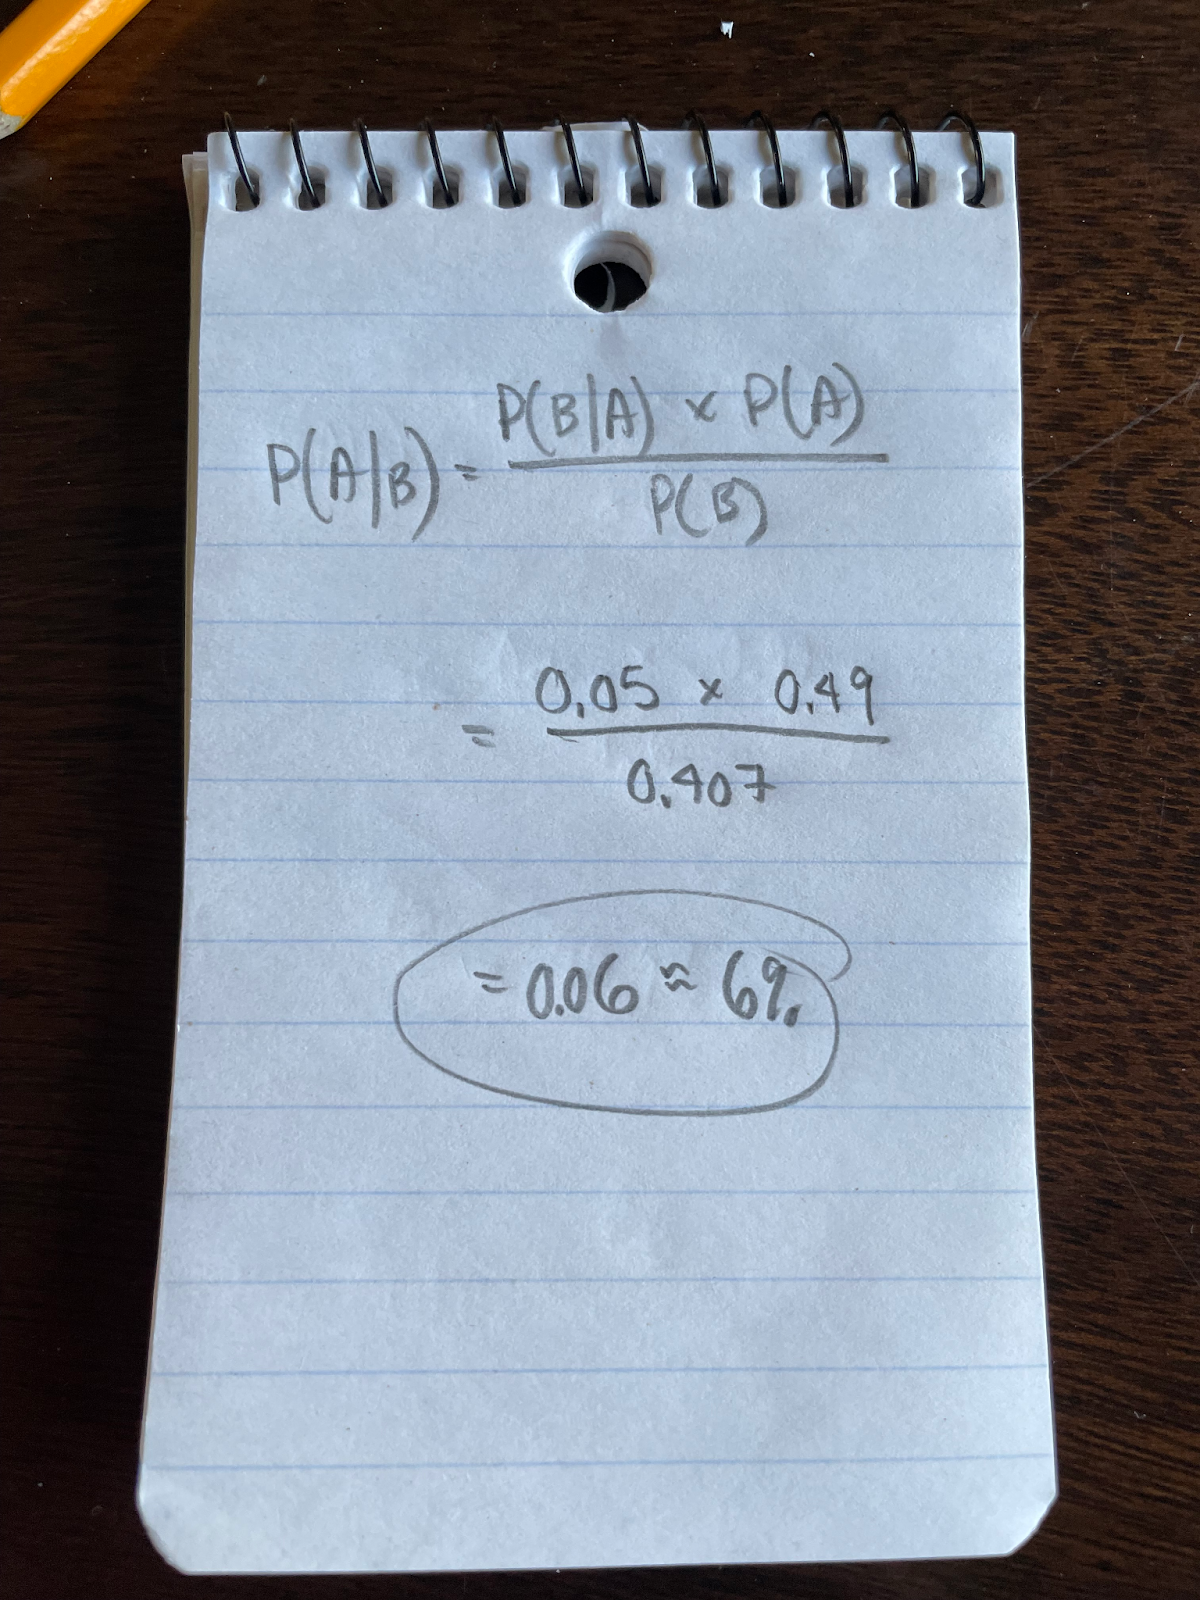 P(A|B) = P(B|A) × P(A) / P(B)
= 0.05 × 0.49 / 0.407
= 0.06 ≈ 6%